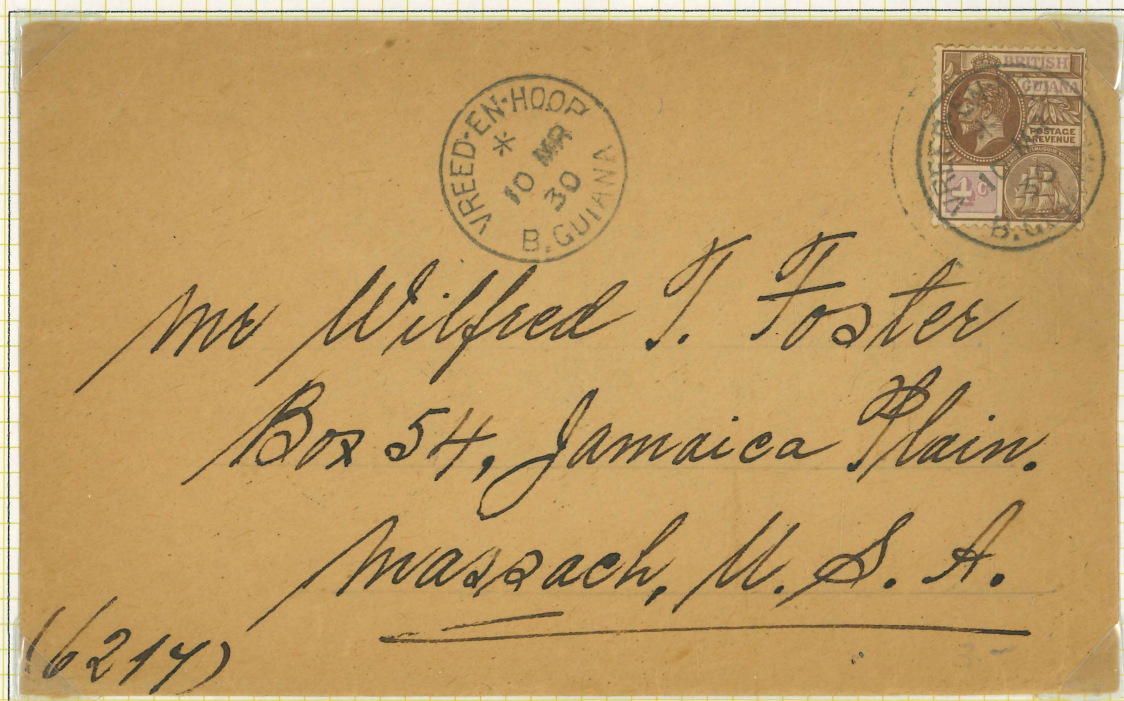 VREED-EN-HOOP
*
10 MR
30
B. GUIANA
BRITISH
GUIANA
POSTAGE
& REVENUE
4 C
Mr Wilfred T. Foster
Box 54, Jamaica Plain.
Massach, U. S. A.
(6217)
3-